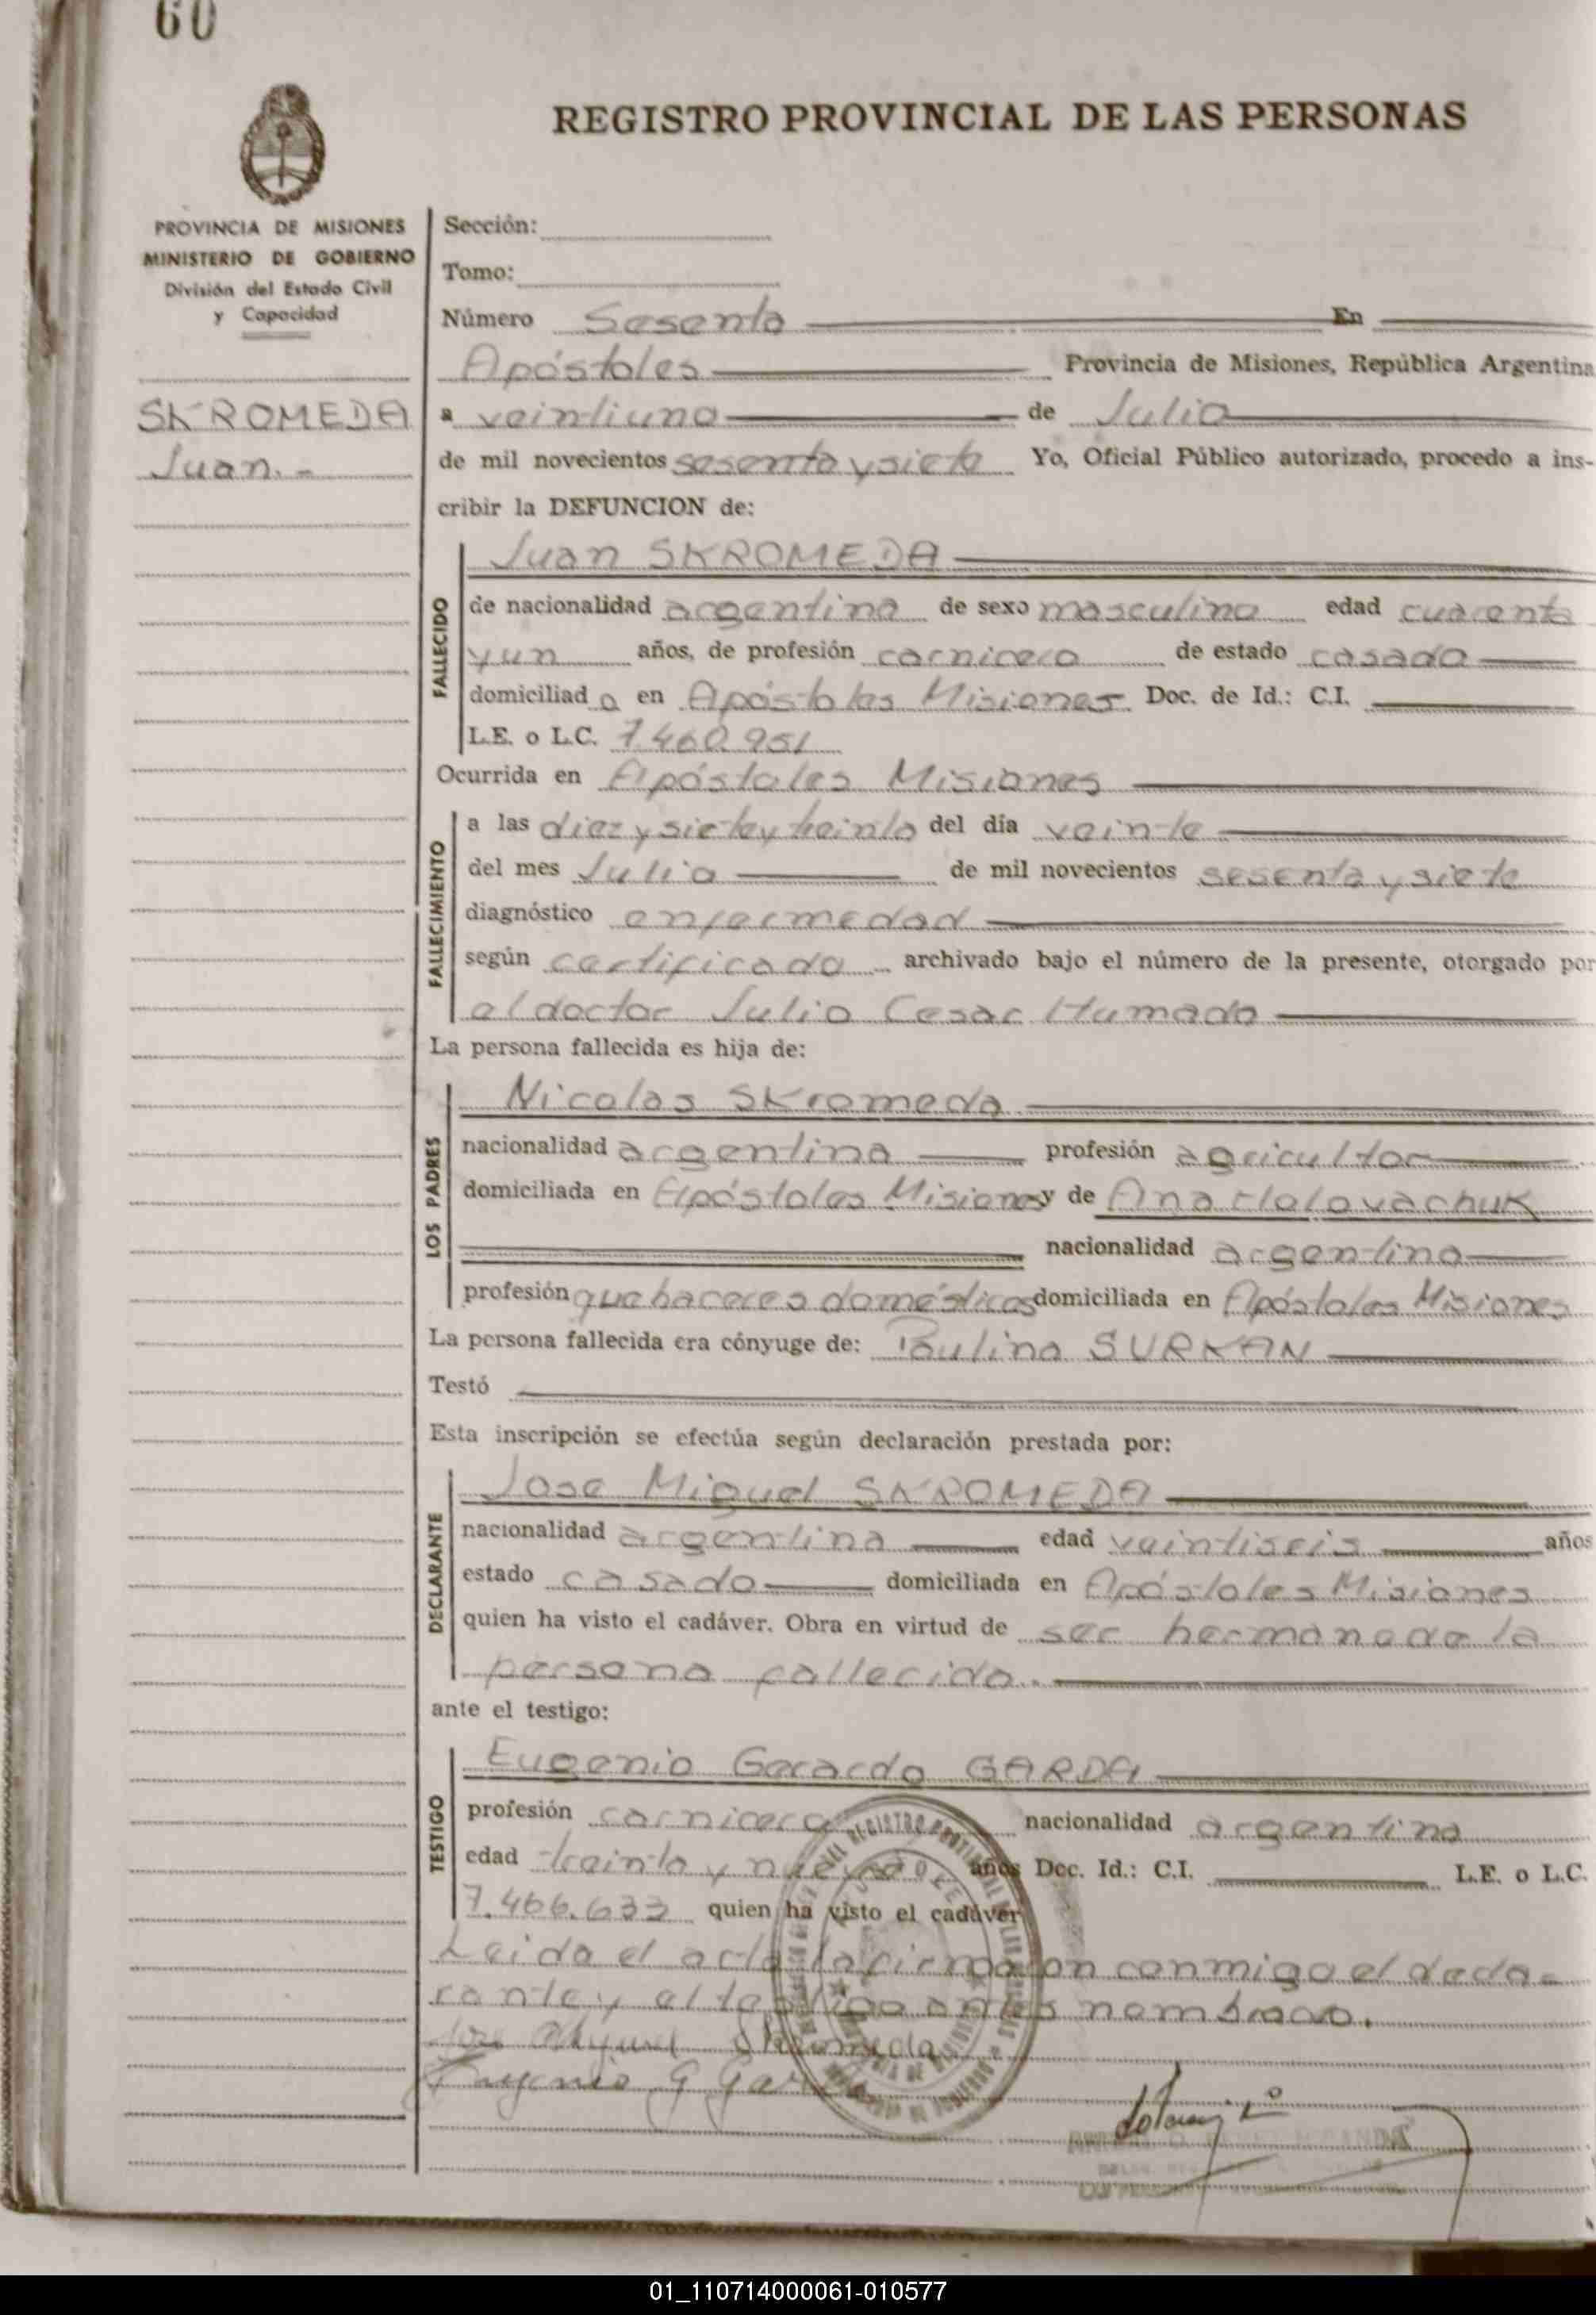 60
REGISTRO PROVINCIAL DE LAS PERSONAS
PROVINCIA DE MISIONES
MINISTERIO DE GOBIERNO
División del Estado Civil
y Capacidad
SKROMEDA
Juan.-
Sección:
Tomo:
Número Sesenta En
Apóstoles Provincia de Misiones, República Argentina
a veintiuno de Julio
de mil novecientos sesenta y siete Yo, Oficial Público autorizado, procedo a ins-
cribir la DEFUNCION de:
FALLECIDO
Juan SKROMEDA
de nacionalidad argentina de sexo masculino edad cuarenta
y un años, de profesión carnicero de estado casado
domiciliado en Apóstoles Misiones Doc. de Id.: C.I.
L.E. o L.C. 7.460.951
Ocurrida en Apóstoles Misiones
FALLECIMIENTO
a las diez y siete y treinta del día veinte
del mes Julio de mil novecientos sesenta y siete
diagnóstico enfermedad
según certificado archivado bajo el número de la presente, otorgado por
el doctor Julio Cesar Humada
La persona fallecida es hija de:
LOS PADRES
Nicolas Skromeda
nacionalidad argentina profesión agricultor
domiciliada en Apóstoles Misiones y de Ana Holovachuk
nacionalidad argentina
profesión quehaceres domésticos domiciliada en Apóstoles Misiones
La persona fallecida era cónyuge de: Paulina SURKAN
Testó
Esta inscripción se efectúa según declaración prestada por:
DECLARANTE
Jose Miguel SKROMEDA
nacionalidad argentina edad veintiseis años
estado casado domiciliada en Apóstoles Misiones
quien ha visto el cadáver. Obra en virtud de ser hermano de la
persona fallecida.
ante el testigo:
TESTIGO
Eugenio Gerardo GARDA
profesión carnicero nacionalidad argentina
edad treinta y nueve años Doc. Id.: C.I. L.E. o L.C.
7.466.633 quien ha visto el cadáver
Leida el acta la firmaron conmigo el decla-
rante y el testigo antes nombrado.
Jose Miguel Skromeda
Eugenio G Garda
01_110714000061-010577